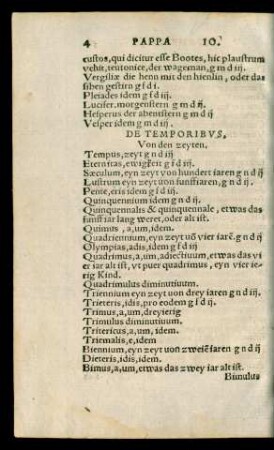 4 PAPPA 10.
custos, qui dicitur esse Bootes, hic plaustrum
vehit, teutonice, der wageman, g m d iij
Vergiliæ die henn mit den hienlin, oder das
siben gestirn g f d i.
Pleiades idem g f d iij.
Lucifer. morgenstern g m d ij
Hesperus der abentstern g m d ij.
Vesper idem g m d iij.
DE TEMPORIBVS,
Von den zeyten.
Tempus, zeyt g n d iij
Eternitas, ewigkeit g f d iij
Sæculum, eyn zeyt von hundert iaren g n d ij
Lustrum eyn zeyt uon funff iaren, g n d ij.
Pente, eris idem g f d iij.
Quinquennium idem g n d ij.
Quinquennalis & quinquennale, etwas das
funff iar lang weret, oder alt ist.
Quimus, a, um, idem.
Quadriennium, eyn zeyt uō vier iarē. g n d ij
Olympias, adis, idem g f d iij
Quadrimus, a, um, adiectiuum, etwas das vi
er iar alt ist, vt puer quadrimus, eyn vier ie
rig Kind.
Quadrimulus diminutiuum.
Triennium eyn zeyt uon drey iaren g n d ij
Trieteris, idis, pro eodem g f d ij.
Trimus, a, um, dreyierig
Trimulus diminutiuum.
Tritericus, a, um, idem.
Triemalis, e, idem
Biennium, eyn zeyt uon zweiē iaren g n d ij
Dieteris, idis, idem.
Bimus, a, um, etwas das zwey iar alt ist.
Bimulus